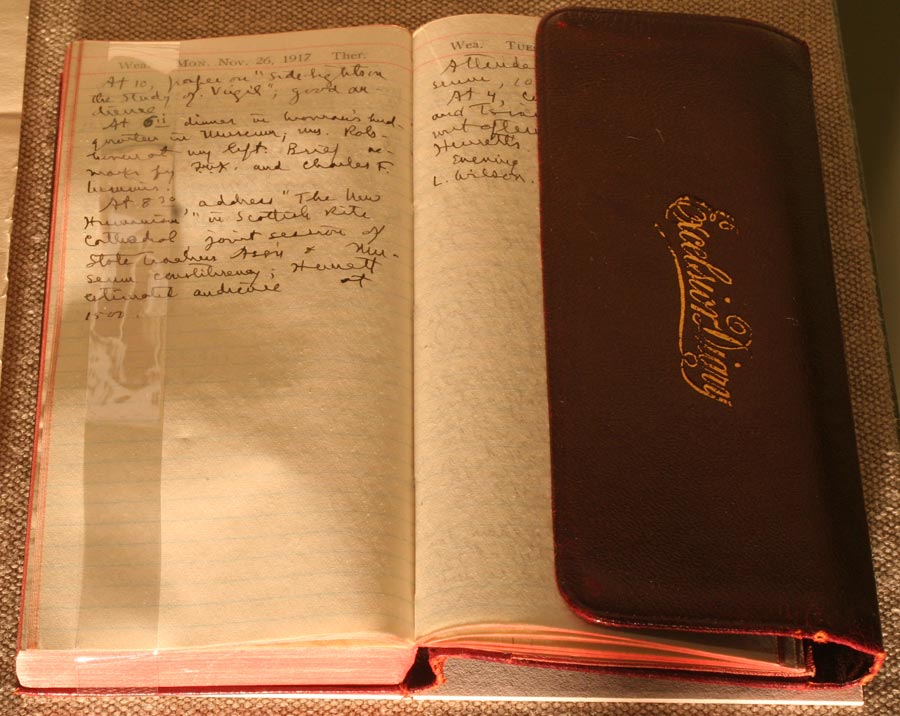 Wea. Mon. Nov. 26, 1917 Ther.
At 10, paper on "Side-lights on
the Study of Virgil"; good au-
dience.
At 6 dinner in woman's head-
quarters in Museum; Mrs.
at my left. Brief re-
marks by and Charles F.
Lummis.
At 8 30, address "The New
Humanism," in Scottish Rite
Cathedral, joint session of
State Teachers Ass'n & Mu-
seum constituency; Hewett
estimated audience at
1500.
Wea. Tue
Attende
seum, 10
At 4,
and
out of
Hewett's.
Evening
L. Wilson.
Excelsior Diary